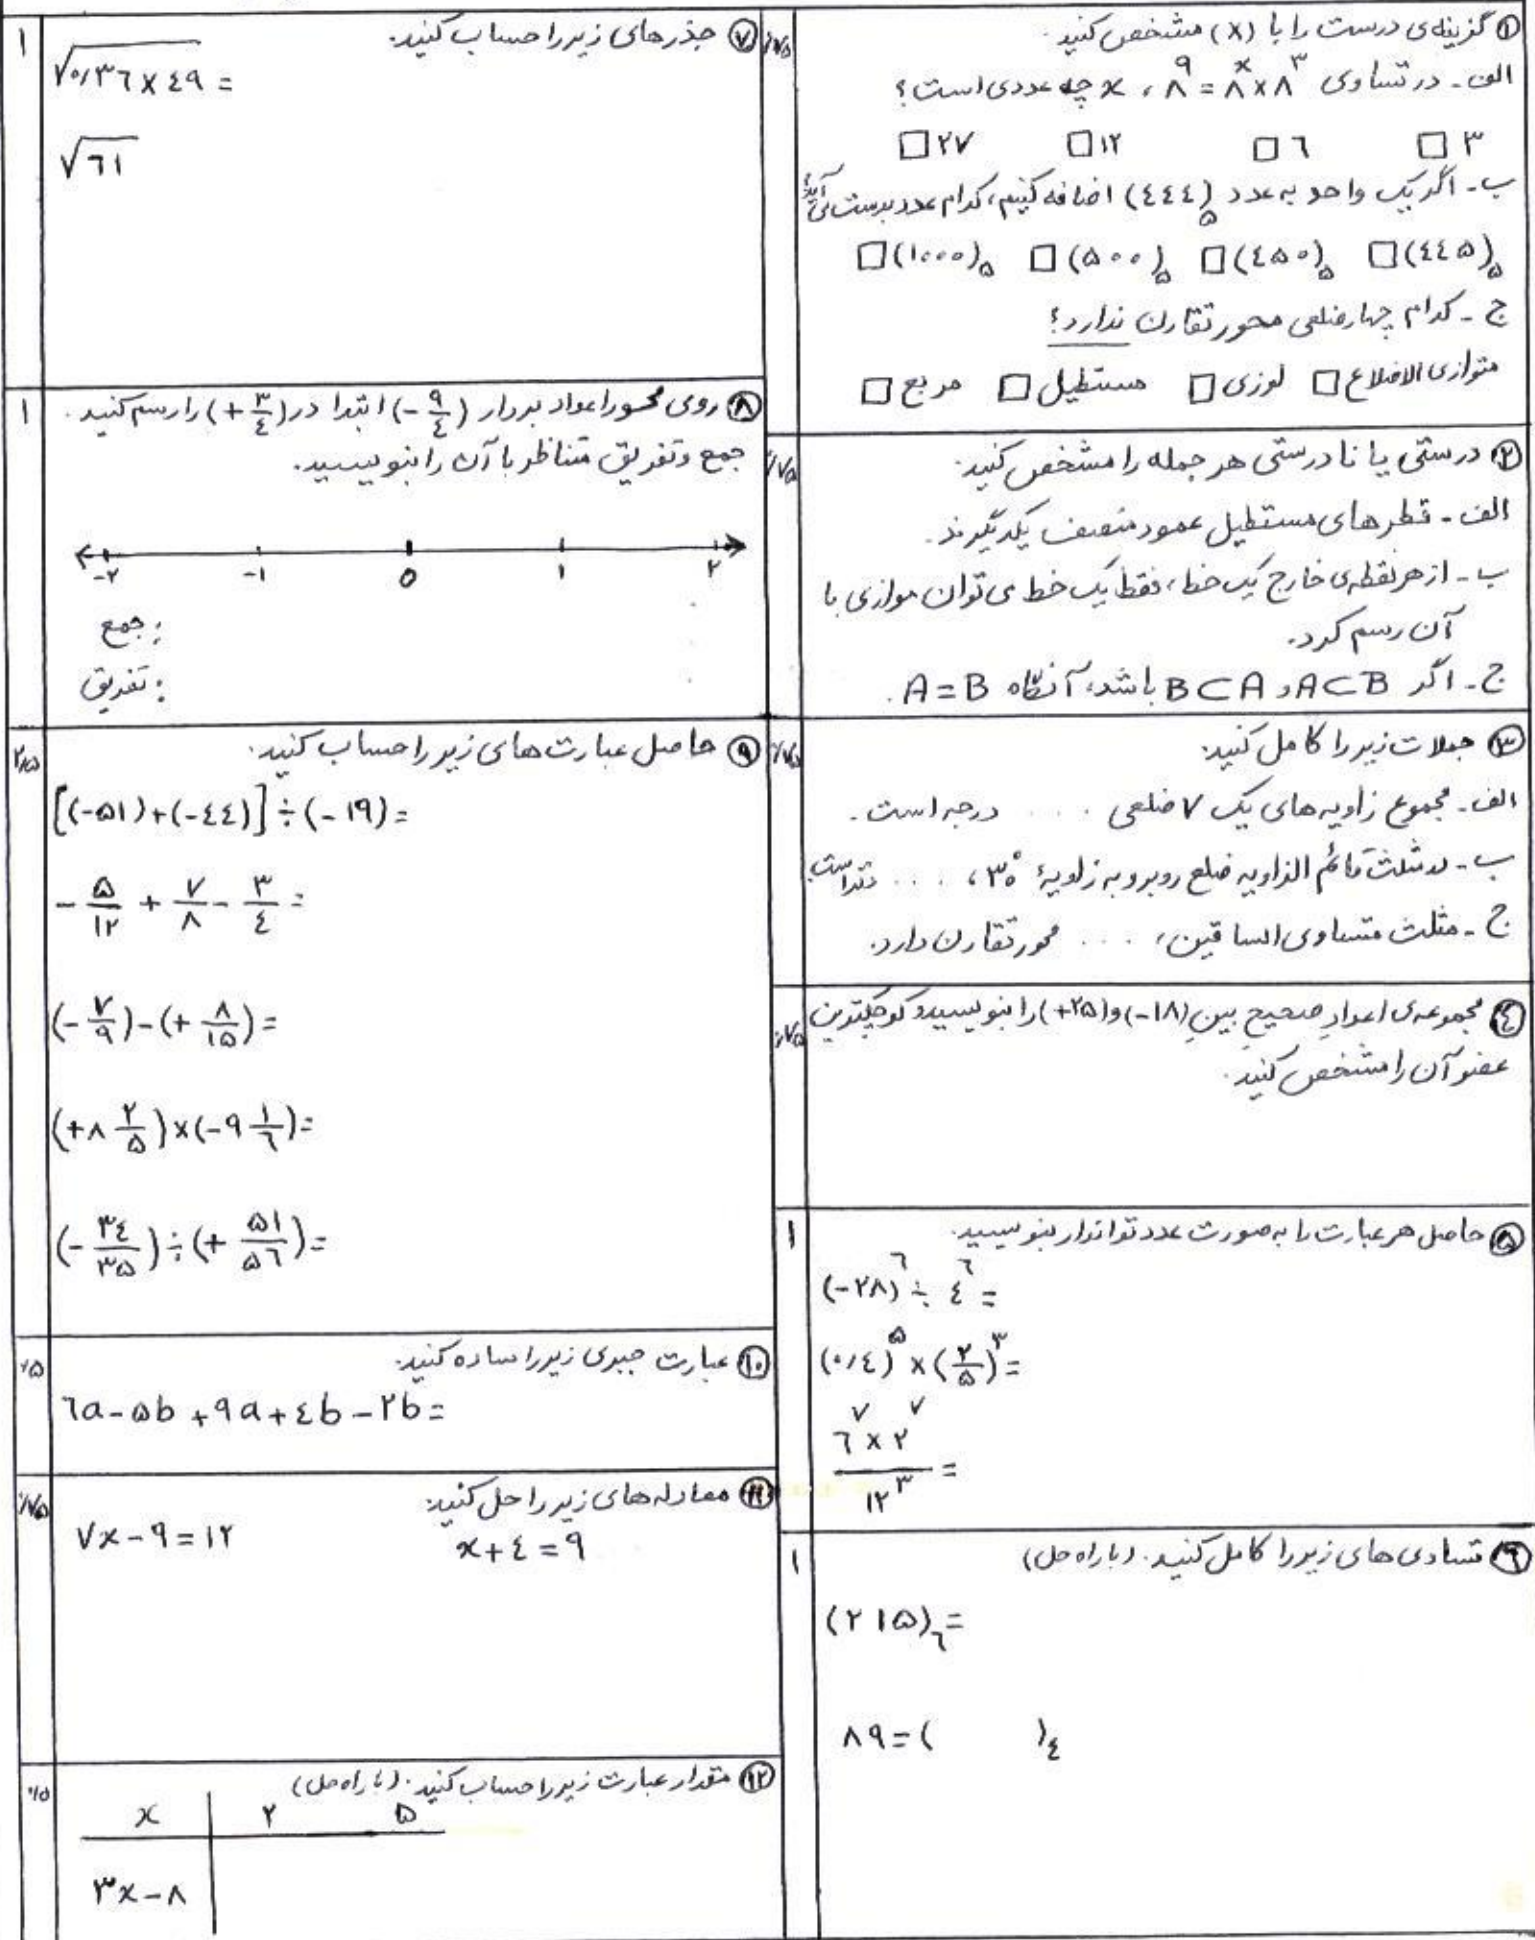 ① گزینه‌ی درست را با (x) مشخص کنید.
۰/۷۵
الف - در تساوی ۸^۹ = ۸^x × ۸^۳ ، x چه عددی است؟
۳ □ ٦ □ ۱۲ □ ۲۷ □
ب - اگر یک واحد به عدد (٤٤٤)_۵ اضافه کنیم، کدام عدد بدست می‌آید؟
(٤٤۵)_۵ □ (٤۵۰)_۵ □ (۵۰۰)_۵ □ (۱۰۰۰)_۵ □
ج - کدام چهارضلعی محور تقارن ندارد؟
متوازی الاضلاع □ لوزی □ مستطیل □ مربع □
② درستی یا نادرستی هر جمله را مشخص کنید.
۰/۷۵
الف - قطرهای مستطیل عمود منصف یکدیگرند.
ب - از هر نقطه‌ی خارج یک خط، فقط یک خط می‌توان موازی با
آن رسم کرد.
ج - اگر A⊂B و B⊂A باشد، آنگاه A=B .
③ جملات زیر را کامل کنید.
۰/۷۵
الف - مجموع زاویه‌های یک ۷ ضلعی .... درجه است.
ب - در مثلث قائم الزاویه ضلع روبرو به زاویهٔ ۳۰° ، .... وتر است
ج - مثلث متساوی الساقین، .... محور تقارن دارد.
④ مجموعه‌ی اعداد صحیح بین (-۱۸) و (+۲۵) را بنویسید و کوچکترین
۰/۷۵
عضو آن را مشخص کنید.
⑤ حاصل هر عبارت را به صورت عدد تواندار بنویسید.
۱
(-۲۸)^٦ ÷ ٤^٦ =
(۰/٤)^۵ × (۲/۵)^۳ =
(٦^۷ × ۲^۷)/۱۲^۳ =
⑥ تساوی های زیر را کامل کنید. (با راه حل)
۱
(۲۱۵)_٦ =
۸۹ = ( )_٤
⑦ جذرهای زیر را حساب کنید.
۱
√۰/۳٦ × ٤۹ =
√٦۱
⑧ روی محور اعداد بردار (-۹/٤) ابتدا در (+۳/٤) را رسم کنید.
۱
جمع و تفریق متناظر با آن را بنویسید.
-۲ -۱ ۰ ۱ ۲
جمع :
تفریق :
⑨ حاصل عبارت های زیر را حساب کنید.
۲/۵
[(-۵۱)+(-٤٤)] ÷ (-۱۹) =
-۵/۱۲ + ۷/۸ - ۳/٤ =
(-۷/۹) - (+۸/۱۵) =
(+۸ ۲/۵) × (-۹ ۱/٦) =
(-۳٤/۳۵) ÷ (+۵۱/۵٦) =
⑩ عبارت جبری زیر را ساده کنید.
۰/۵
٦a - ۵b + ۹a + ٤b - ۲b =
⑪ معادله های زیر را حل کنید.
۰/۷۵
x + ٤ = ۹
۷x - ۹ = ۱۲
⑫ مقدار عبارت زیر را حساب کنید. (با راه حل)
۰/۵
x ۲ ۵
۳x - ۸